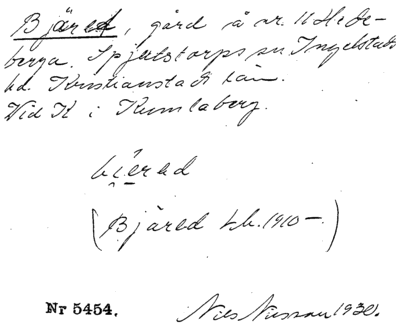 Bjäred, gård å nr. 11 Hede-
berga. Spjutstorps sn Ingelstads
hd. Kristianstads län.
Vid K i Kumlaberg.
bi̯erad
(Bjäred Lb. 1910 –)
Nr 5454.
Nils Nilsson 1930.